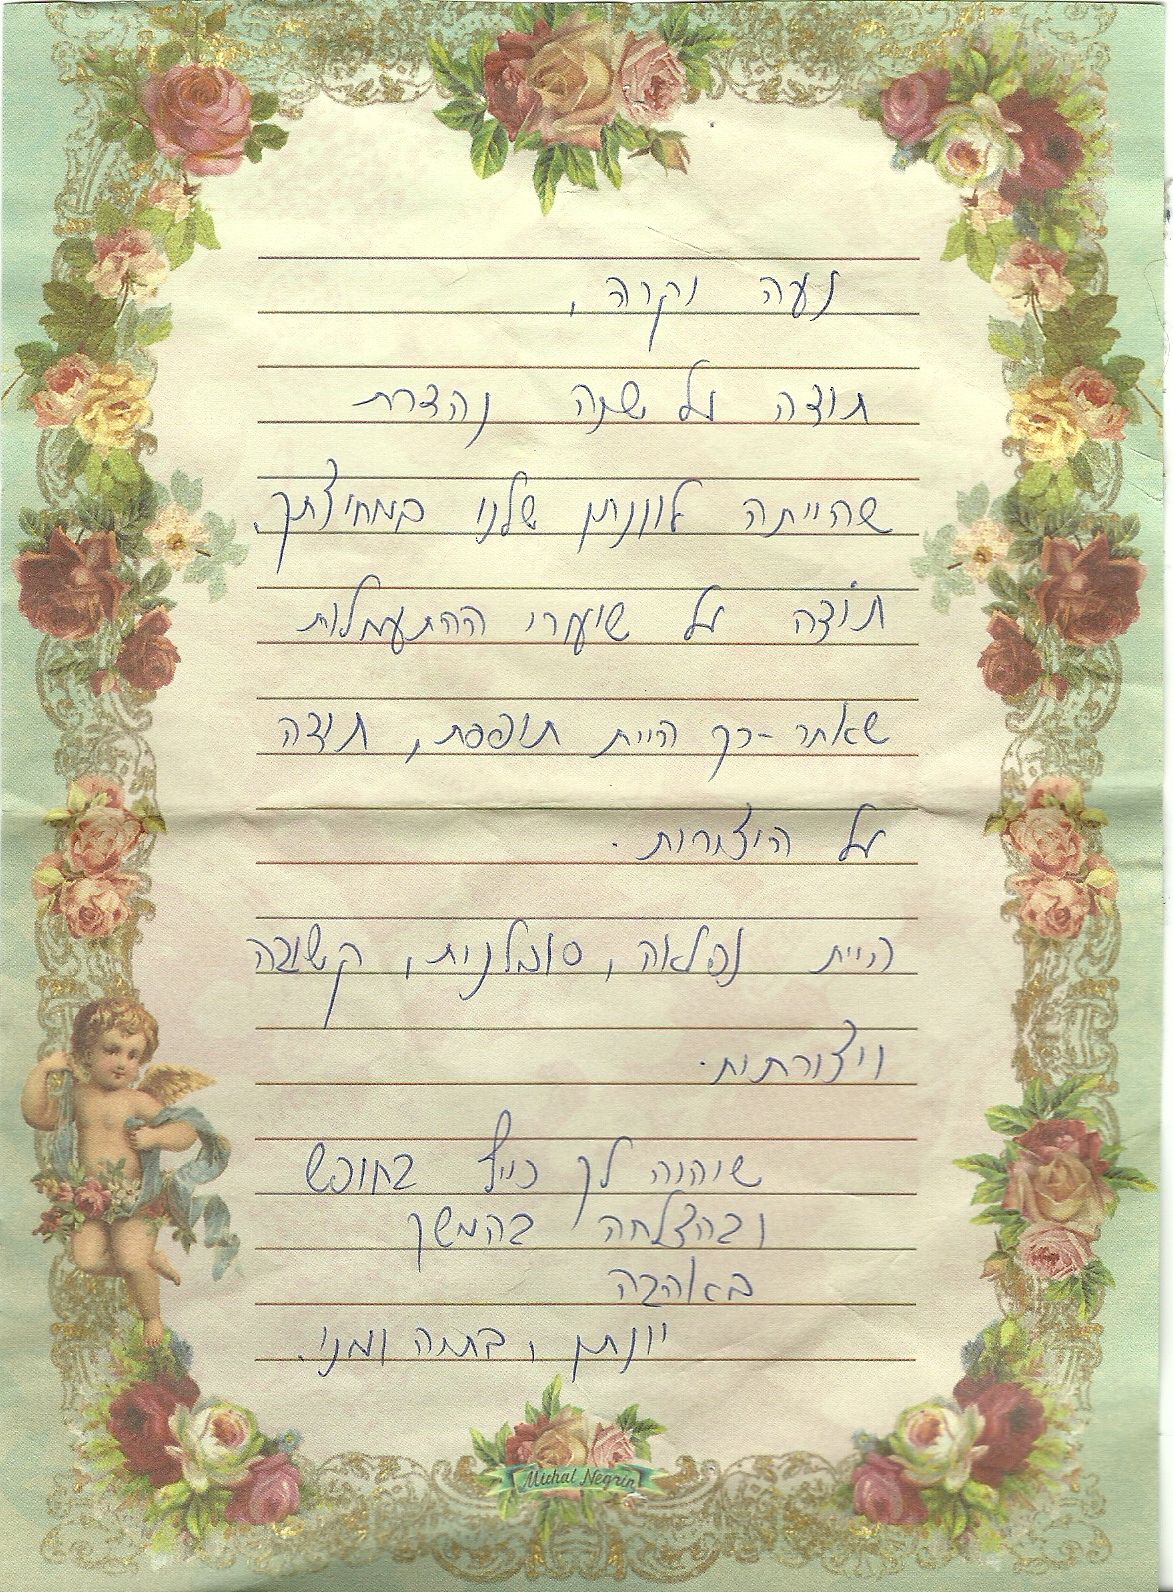 נועה יקרה,
תודה על שנה נהדרת
שהייתה ליונתן שלנו במחיצתך.
תודה על שיעורי ההתעמלות
שאחר-כך היית תופסת, תודה
על היצירות.
היית נפלאה, סובלנית, קשובה
ויצירתית.
שיהיה לך כייף בחופש
ובהצלחה בהמשך
באהבה
יונתן, בתיה ומני.
Michal Negrin